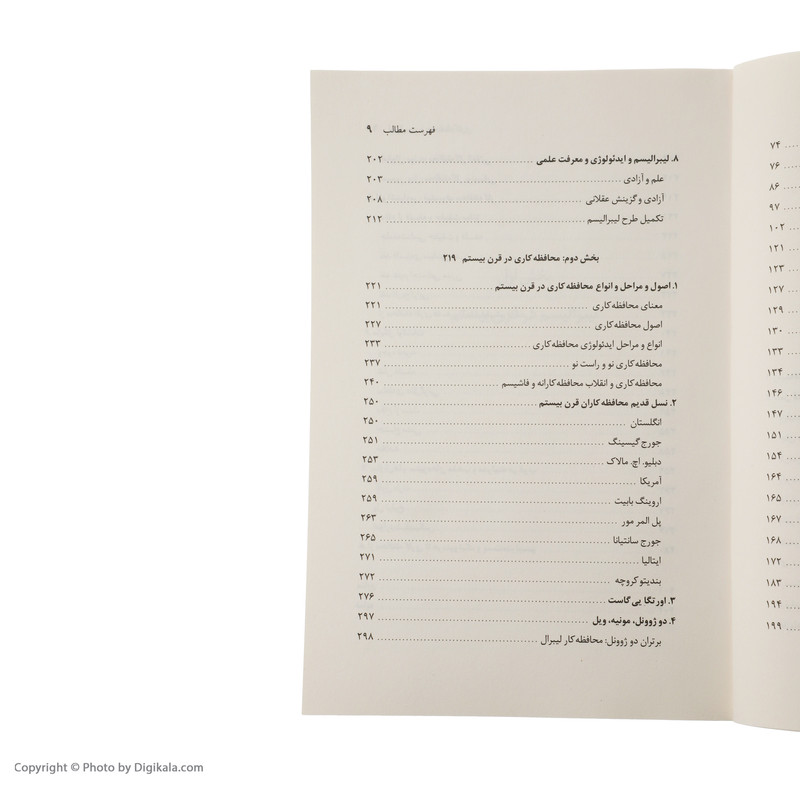 فهرست مطالب ۹
۸. لیبرالیسم و ایدئولوژی و معرفت علمی ۲۰۲
علم و آزادی ۲۰۳
آزادی و گزینش عقلانی ۲۰۸
تکمیل طرح لیبرالیسم ۲۱۲
بخش دوم: محافظه‌کاری در قرن بیستم ۲۱۹
۱. اصول و مراحل و انواع محافظه‌کاری در قرن بیستم ۲۲۱
معنای محافظه‌کاری ۲۲۱
اصول محافظه‌کاری ۲۲۷
انواع و مراحل ایدئولوژی محافظه‌کاری ۲۳۳
محافظه‌کاری نو و راست نو ۲۳۷
محافظه‌کاری و انقلاب محافظه‌کارانه و فاشیسم ۲۴۰
۲. نسل قدیم محافظه‌کاران قرن بیستم ۲۵۰
انگلستان ۲۵۰
جورج گیسینگ ۲۵۱
دبلیو. اچ. مالاک ۲۵۳
آمریکا ۲۵۹
اروینگ بابیت ۲۵۹
پل المر مور ۲۶۳
جورج سانتیانا ۲۶۵
ایتالیا ۲۷۱
بندیتو کروچه ۲۷۲
۳. اورتگا یی گاست ۲۷۶
۴. دو ژوونل، مونیه، ویل ۲۹۷
برتران دو ژوونل: محافظه‌کار لیبرال ۲۹۸
۷۴
۷۶
۸۶
۹۷
۱۰۲
۱۲۱
۱۲۳
۱۲۷
۱۲۹
۱۳۰
۱۳۳
۱۳۴
۱۴۶
۱۴۷
۱۵۱
۱۵۴
۱۶۴
۱۶۵
۱۶۷
۱۶۸
۱۷۲
۱۸۳
۱۹۴
۱۹۹
Copyright © Photo by Digikala.com